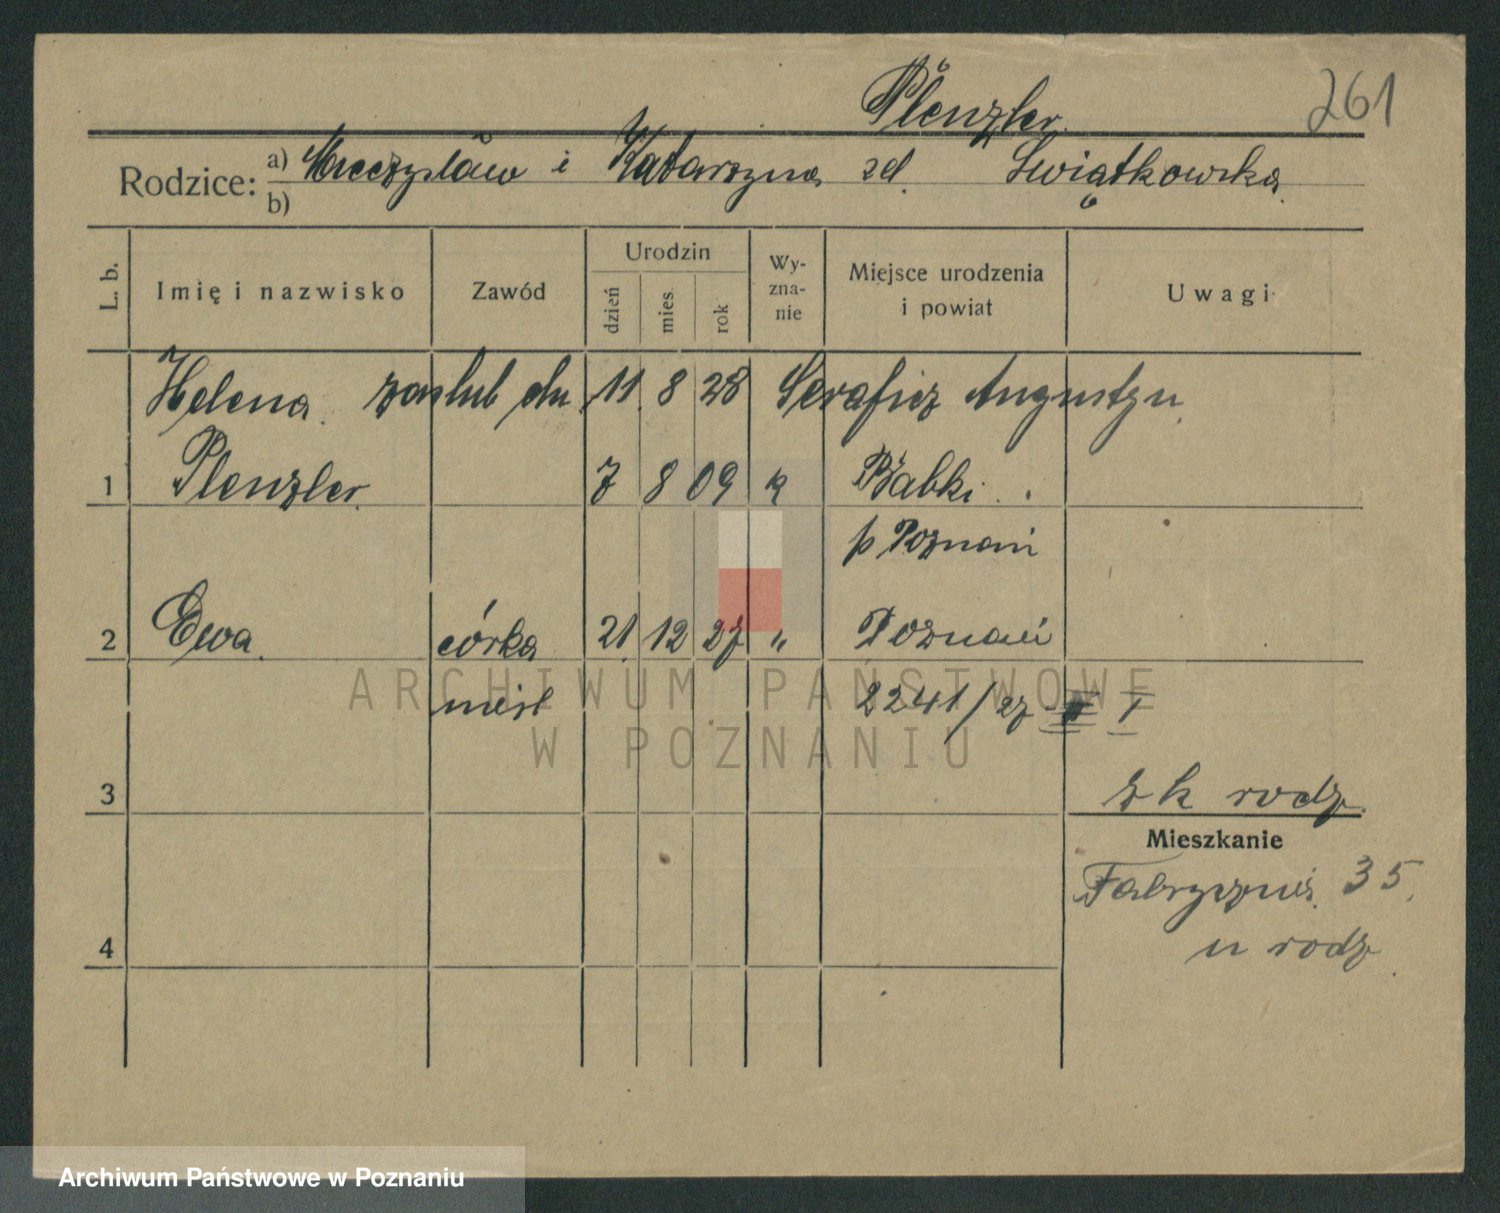 Plenzler
261
Rodzice:
a) Mieczysław i Katarzyna zd. Świątkowska
b)
L. b.
Imię i nazwisko
Zawód
Urodzin
dzień
mies
rok
Wy-
zna-
nie
Miejsce urodzenia
i powiat
Uwagi
Helena zaślub dn. 11. 8 28 Serafin Augustyn
1 Plenzler 7 8 09 k Babki.
p Poznań
2 Ewa córka 21 12 27 " Poznań
nieśl 2241/27 I
3 z k rodz.
Mieszkanie
Fabryczna 35.
u rodz
4
ARCHIWUM PAŃSTWOWE
W POZNANIU
Archiwum Państwowe w Poznaniu